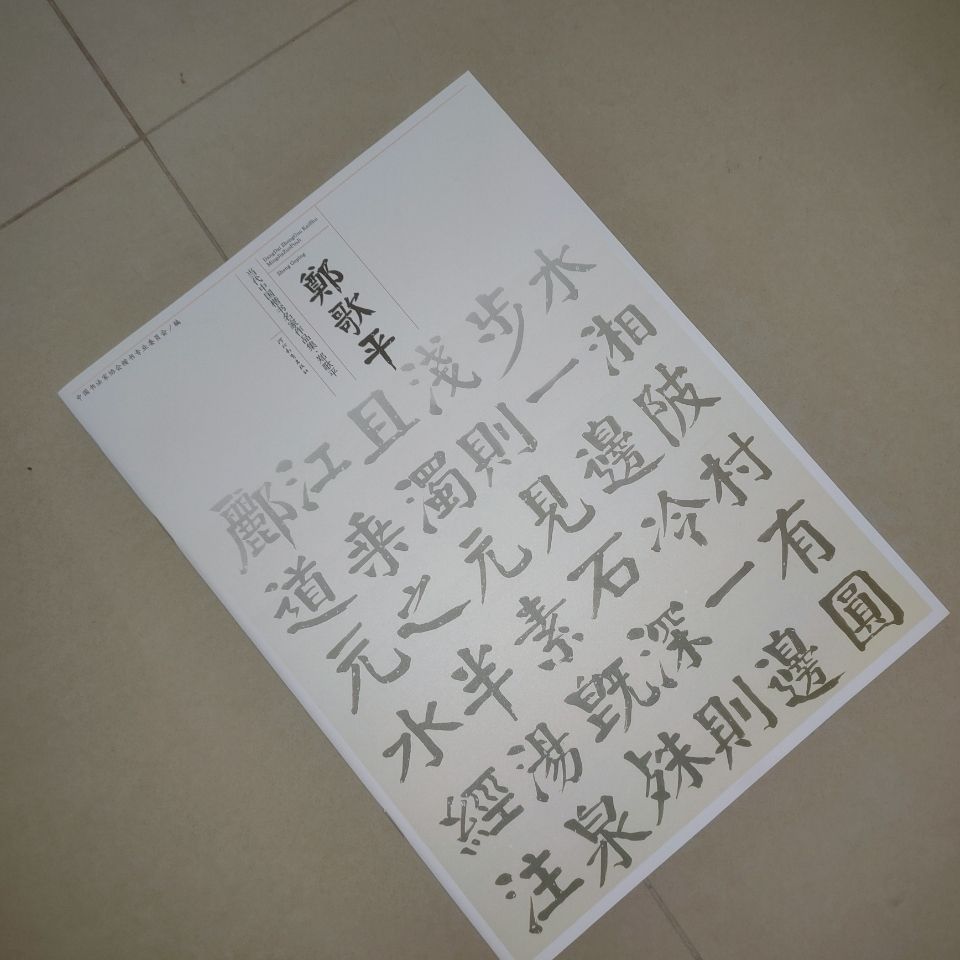 中国书法家协会楷书专业委员会／编
DangDai ZhongGuo KaiShu
MingJiaZuoPinJi
Zheng Geping
鄭歌平
当代中国楷书名家作品集·郑歌平
水湘陂村有圓
步一邊冷一邊
淺則見石深則
且濁元素既殊
江乘之半湯泉
酈道元水經注